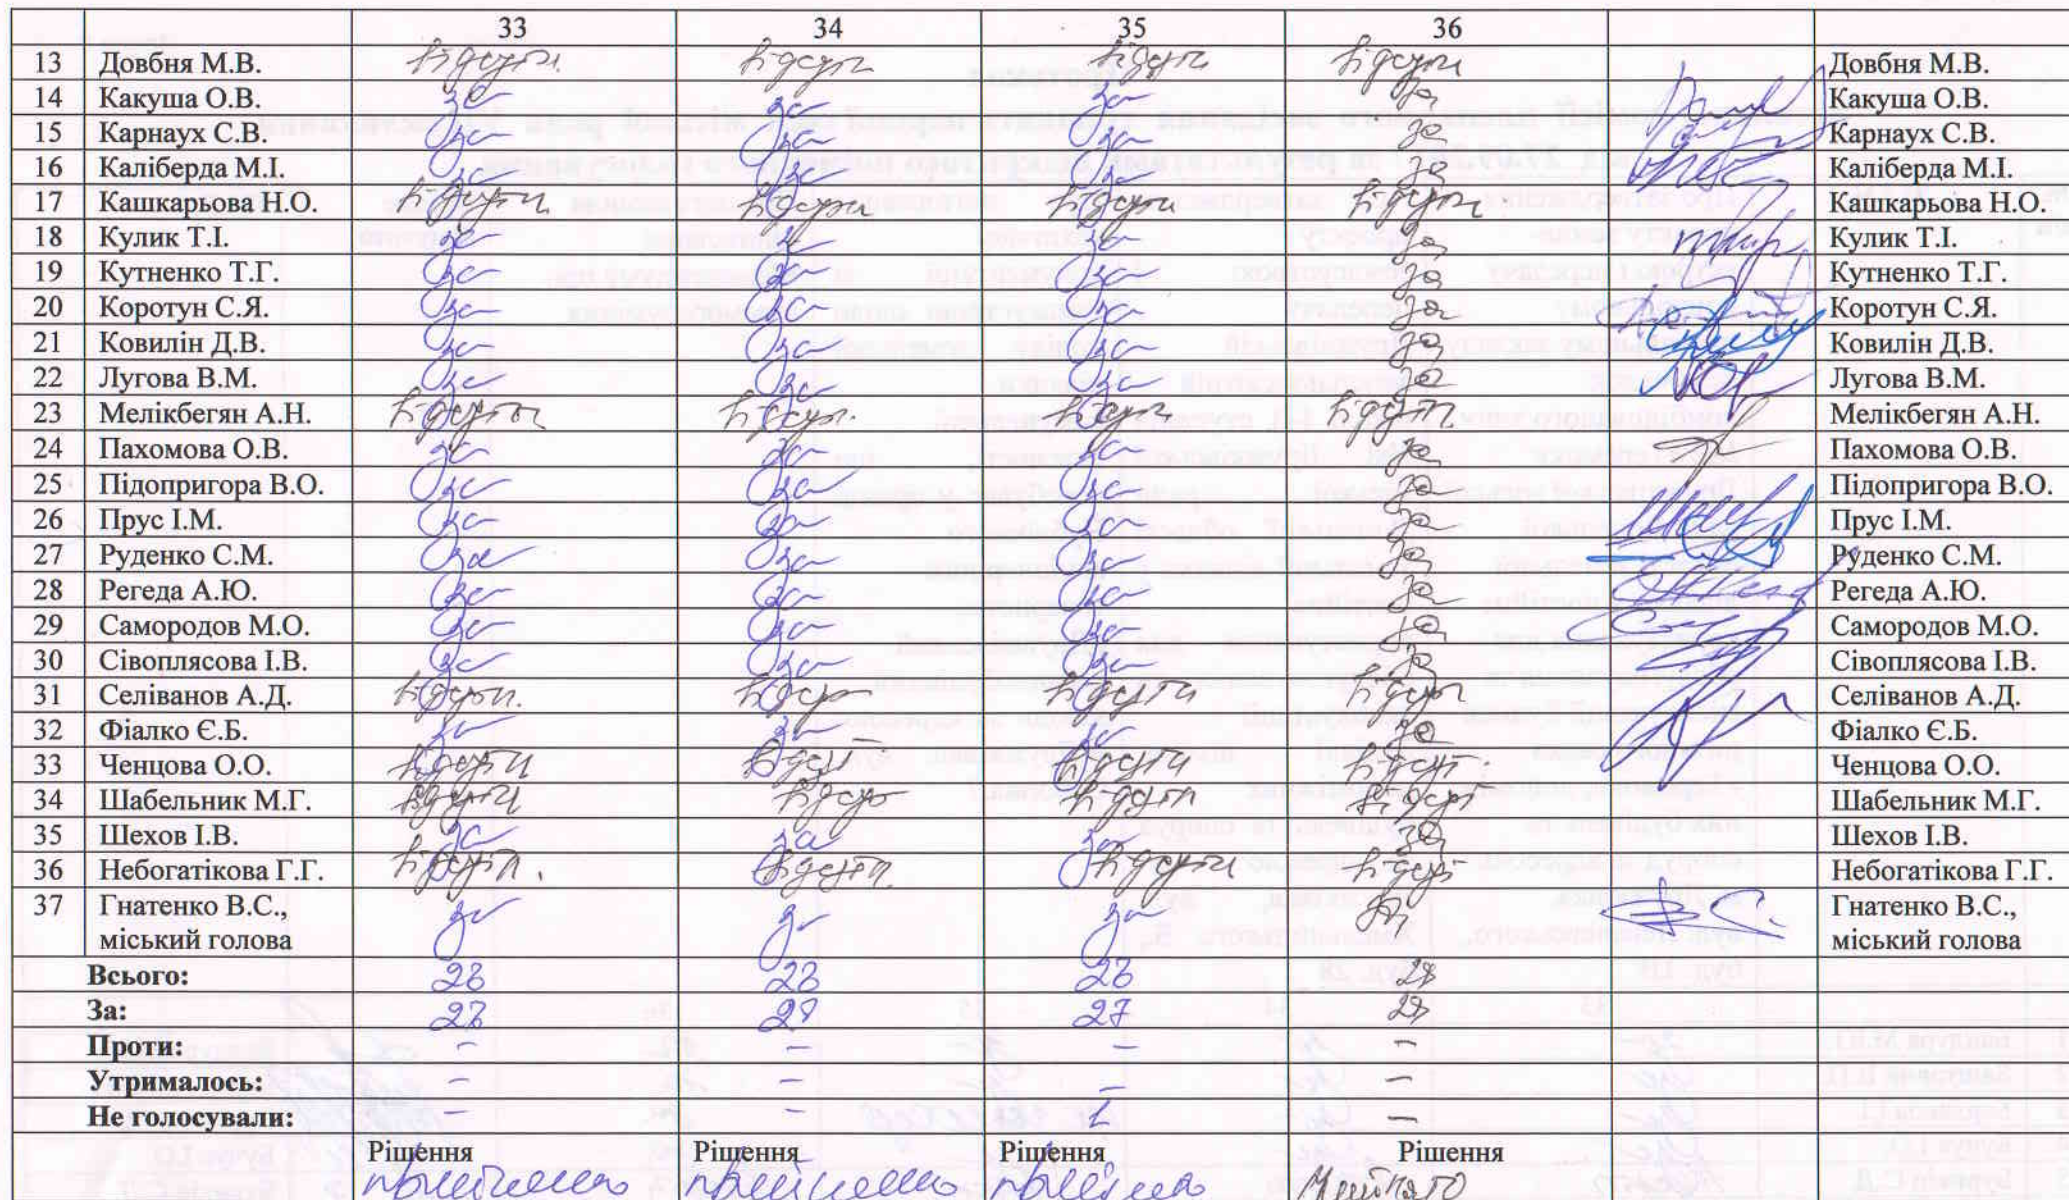 33 34 35 36
13 Довбня М.В. відсутн. відсутн відсутн відсутн Довбня М.В.
14 Какуша О.В. за за за за Какуша О.В.
15 Карнаух С.В. за за за за Карнаух С.В.
16 Каліберда М.І. за за за за Каліберда М.І.
17 Кашкарьова Н.О. відсутн. відсутн відсутн відсутн Кашкарьова Н.О.
18 Кулик Т.І. за за за за Кулик Т.І.
19 Кутненко Т.Г. за за за за Кутненко Т.Г.
20 Коротун С.Я. за за за за Коротун С.Я.
21 Ковилін Д.В. за за за за Ковилін Д.В.
22 Лугова В.М. за за за за Лугова В.М.
23 Мелікбегян А.Н. Мелікбегян А.Н.
24 Пахомова О.В. за за за за Пахомова О.В.
25 Підопригора В.О. за за за за Підопригора В.О.
26 Прус І.М. за за за за Прус І.М.
27 Руденко С.М. за за за за Руденко С.М.
28 Регеда А.Ю. за за за за Регеда А.Ю.
29 Самородов М.О. за за за за Самородов М.О.
30 Сівоплясова І.В. за за за за Сівоплясова І.В.
31 Селіванов А.Д. Селіванов А.Д.
32 Фіалко Є.Б. за за за за Фіалко Є.Б.
33 Ченцова О.О. Ченцова О.О.
34 Шабельник М.Г. Шабельник М.Г.
35 Шехов І.В. за за за за Шехов І.В.
36 Небогатікова Г.Г. Небогатікова Г.Г.
37 Гнатенко В.С., за за за за Гнатенко В.С.,
міський голова міський голова
Всього: 28 28 28
За: 27
Проти: – – – –
Утрималось: – – – –
Не голосували: – – 1 –
Рішення Рішення Рішення Рішення
прийнято прийнято прийнято прийнято